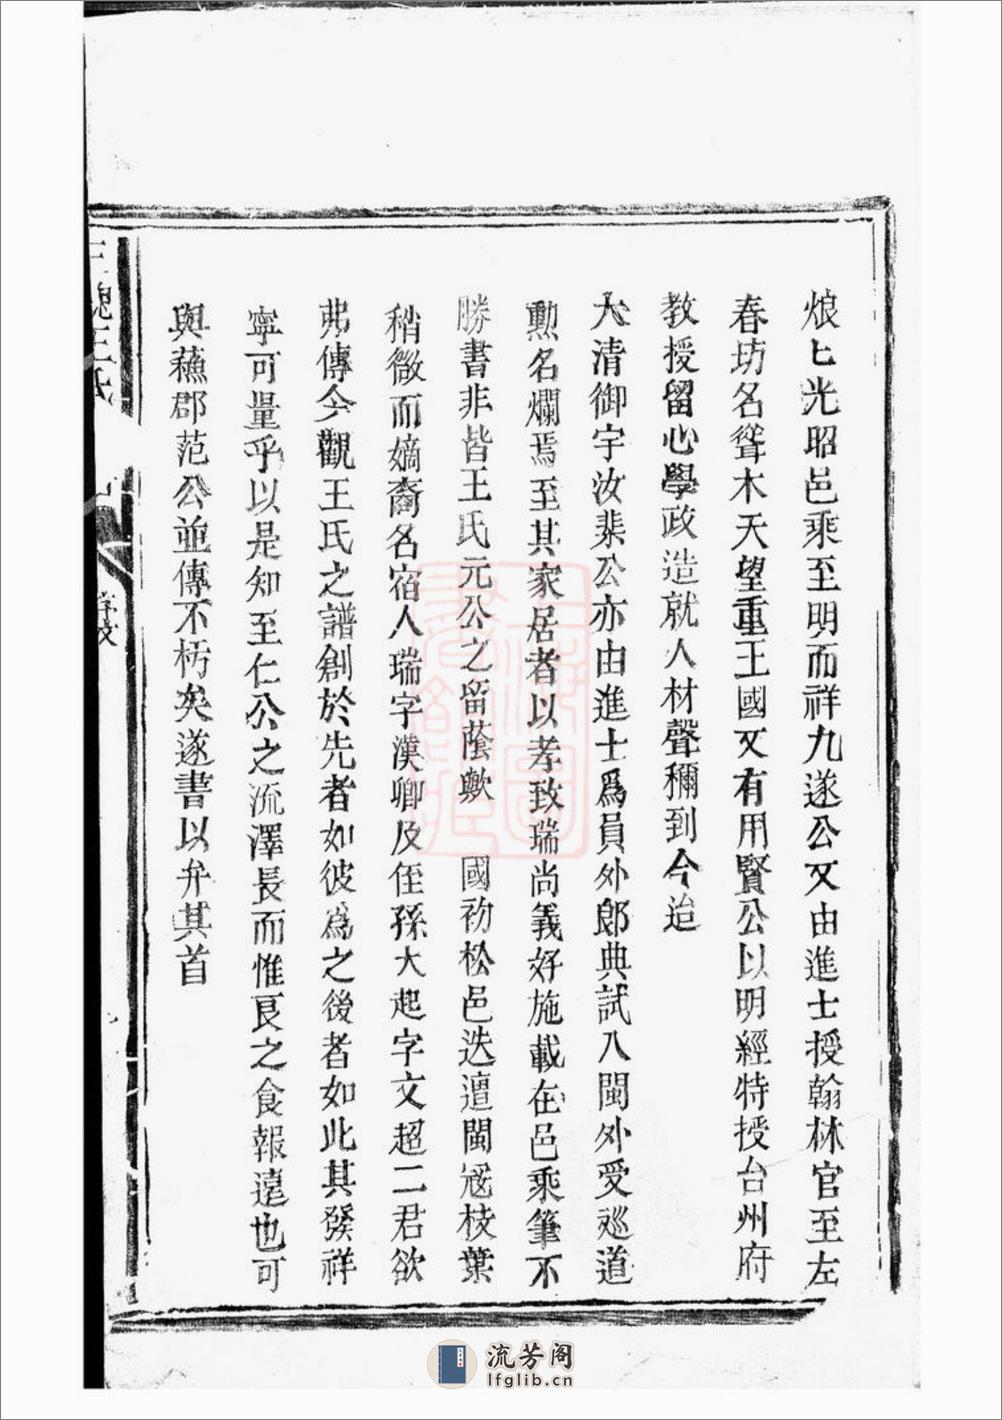 烺匕光昭邑乘至明而祥九遂公又由進士授翰林官至左
春坊名聳木天望重王國又有用賢公以明經特授台州府
教授留心學政造就人材聲稱到今迨
大清御宇汝棐公亦由進士爲員外郎典試八閩外受廵道
勲名爛焉至其家居者以孝致瑞尚義好施載在邑乘筆不
勝書非皆王氏元公之留蔭歟 國初松邑迭遭閩冦枝葉
稍微而嫡裔名宿人瑞字漢卿及侄孫大起字文超二君欲
弗傳今觀王氏之譜創於先者如彼爲之後者如此其發祥
寧可量乎以是知至仁公之流澤長而惟良之食報遠也可
與蘓郡范公並傳不朽矣遂書以弁其首
三槐王氏
流芳阁
lfglib.cn